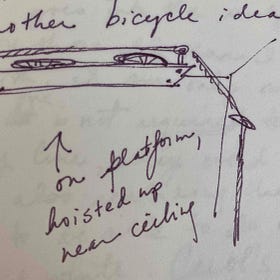 other bicycle idea
on platform,
hoisted up
near ceiling